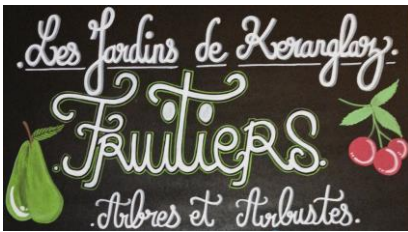 .Les Jardins de Keranglaz.
.Fruitiers.
.Arbres et Arbustes.